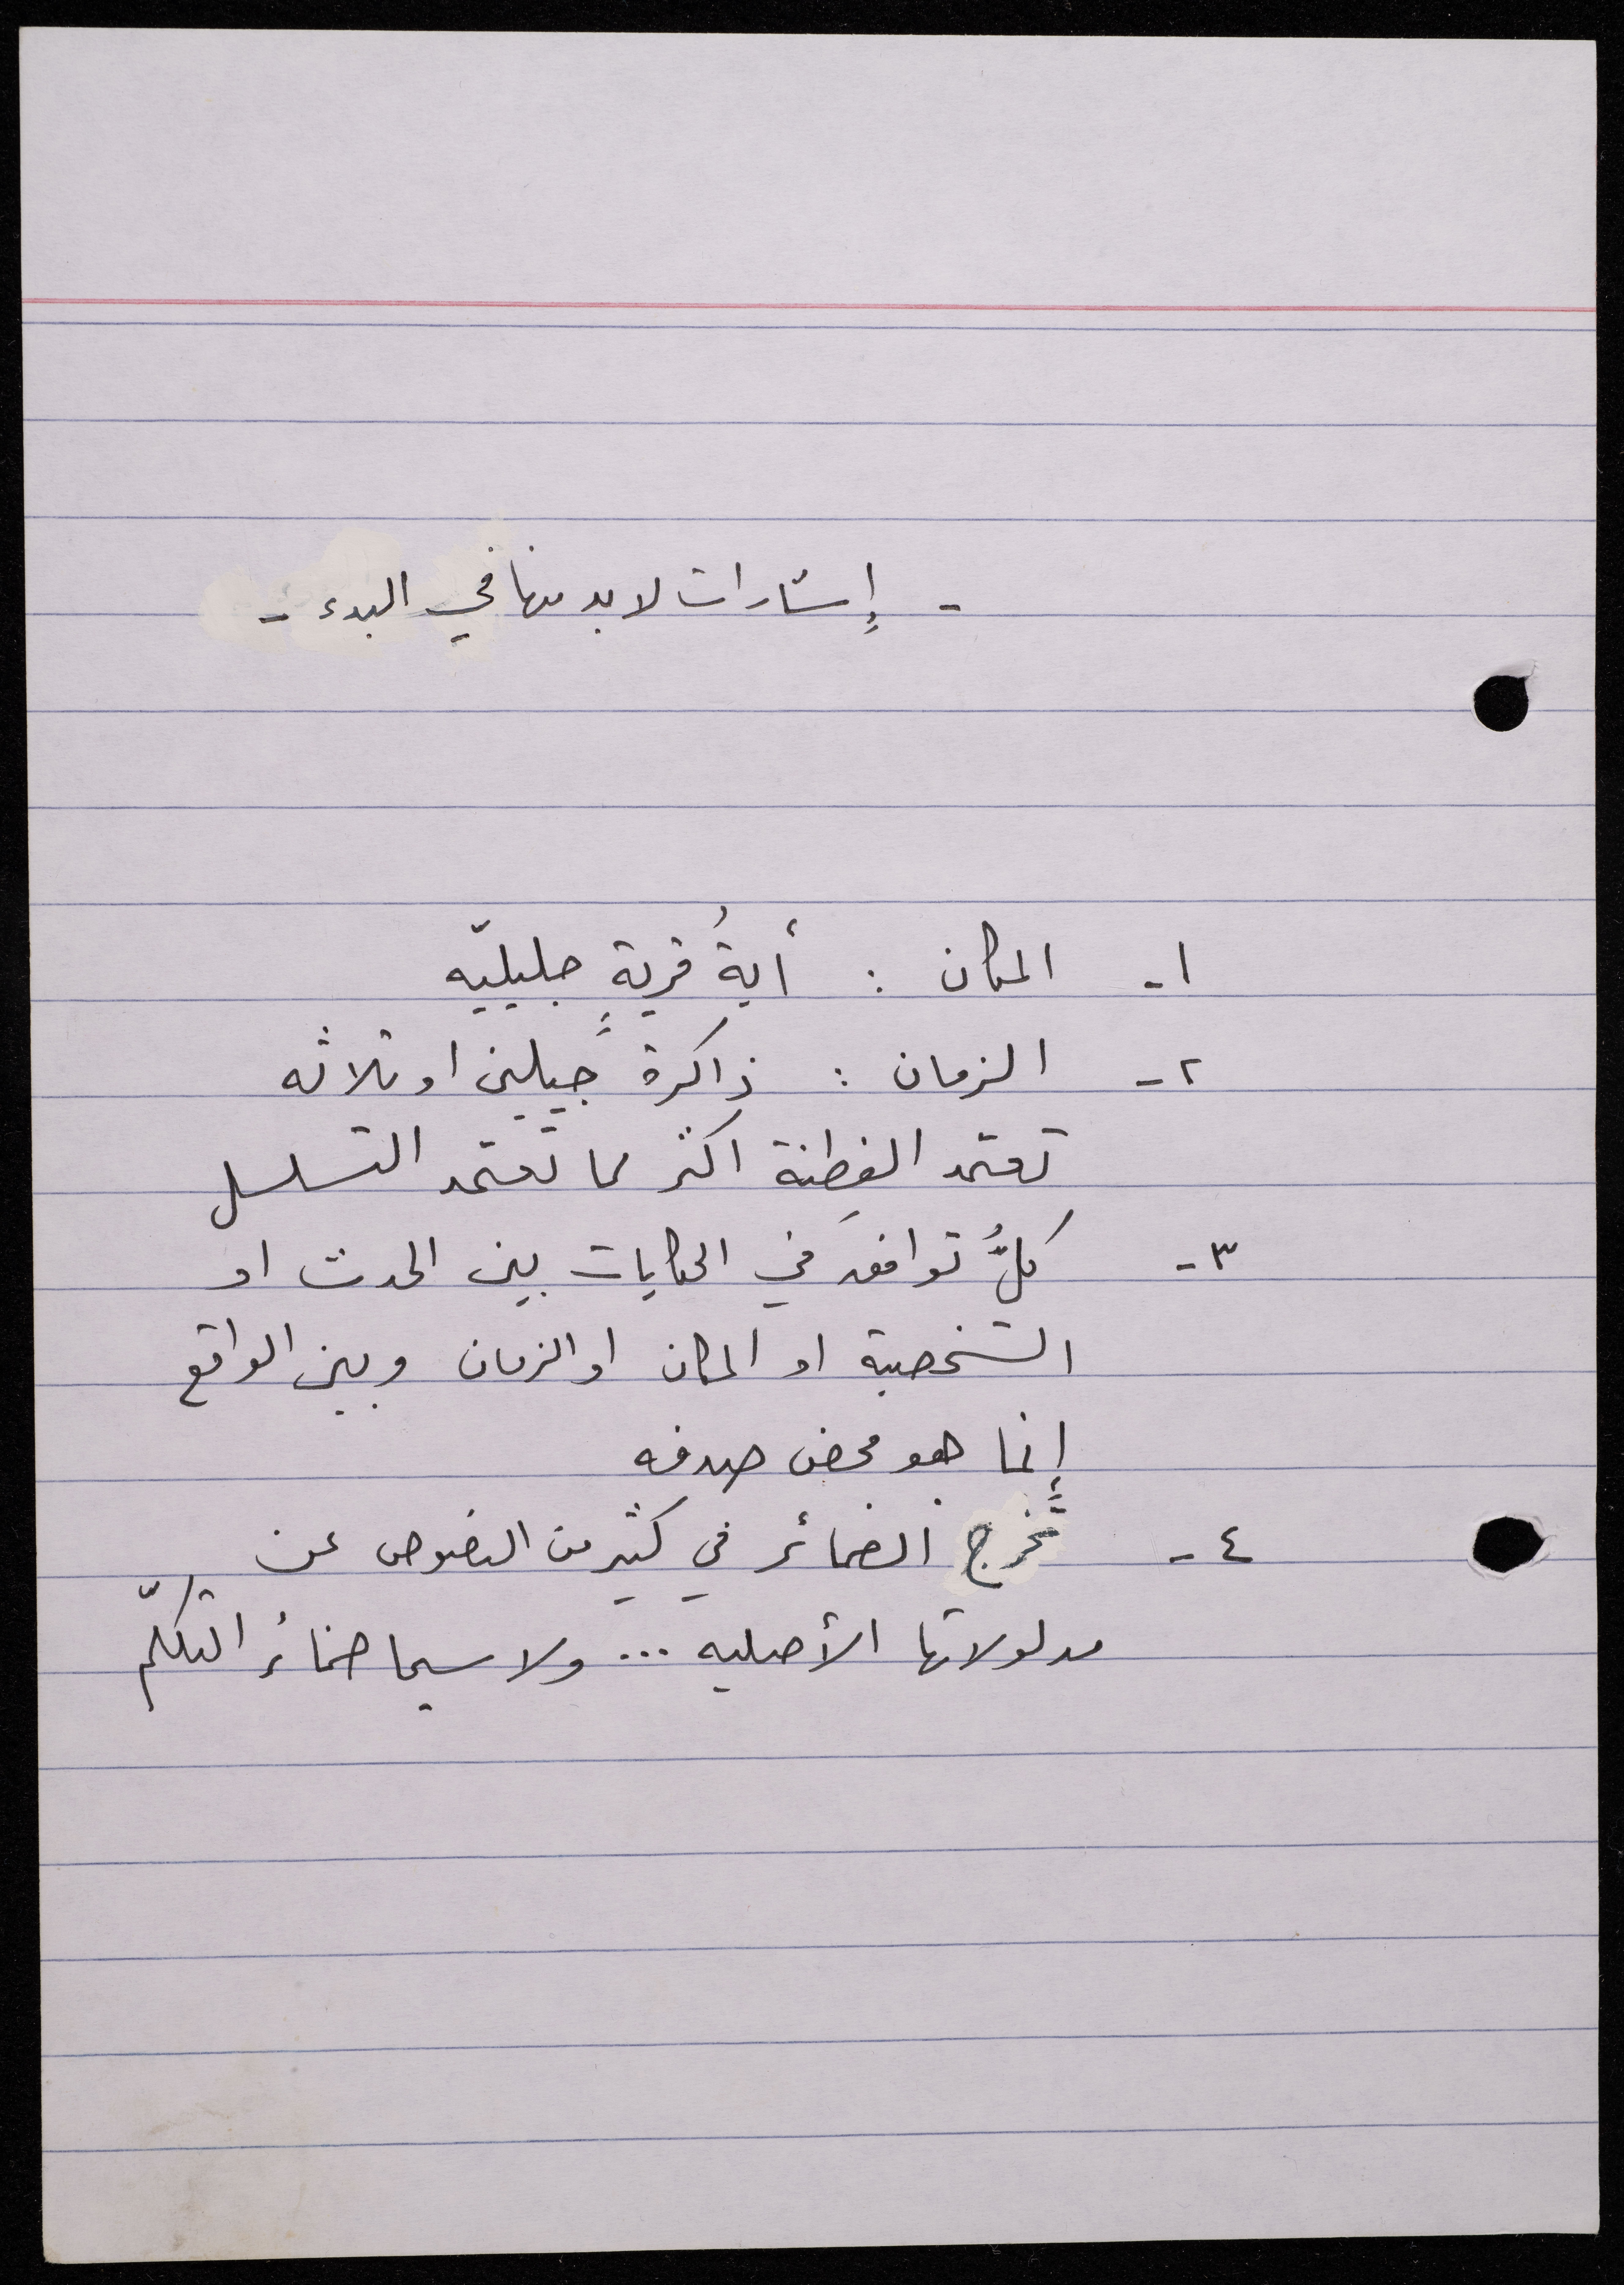 - إِشارات لا بد منها في البدء -
١- المكان : أيةُ قريةٍ جليليّه
٢- الزمان : ذاكرة جيلين او ثلاثه
تعتمد الفِطنة اكثر مما تعتمد التسلسل
٣- كلُّ توافق في الحكايات بين الحدث او
الشخصية او المكان او الزمان وبين الواقع
إنما هو محض صدفه
٤- تَخرج الضمائر في كثير من النصوص عن
مدلولاتها الأصليه ... ولا سيما ضمائر التكلّم